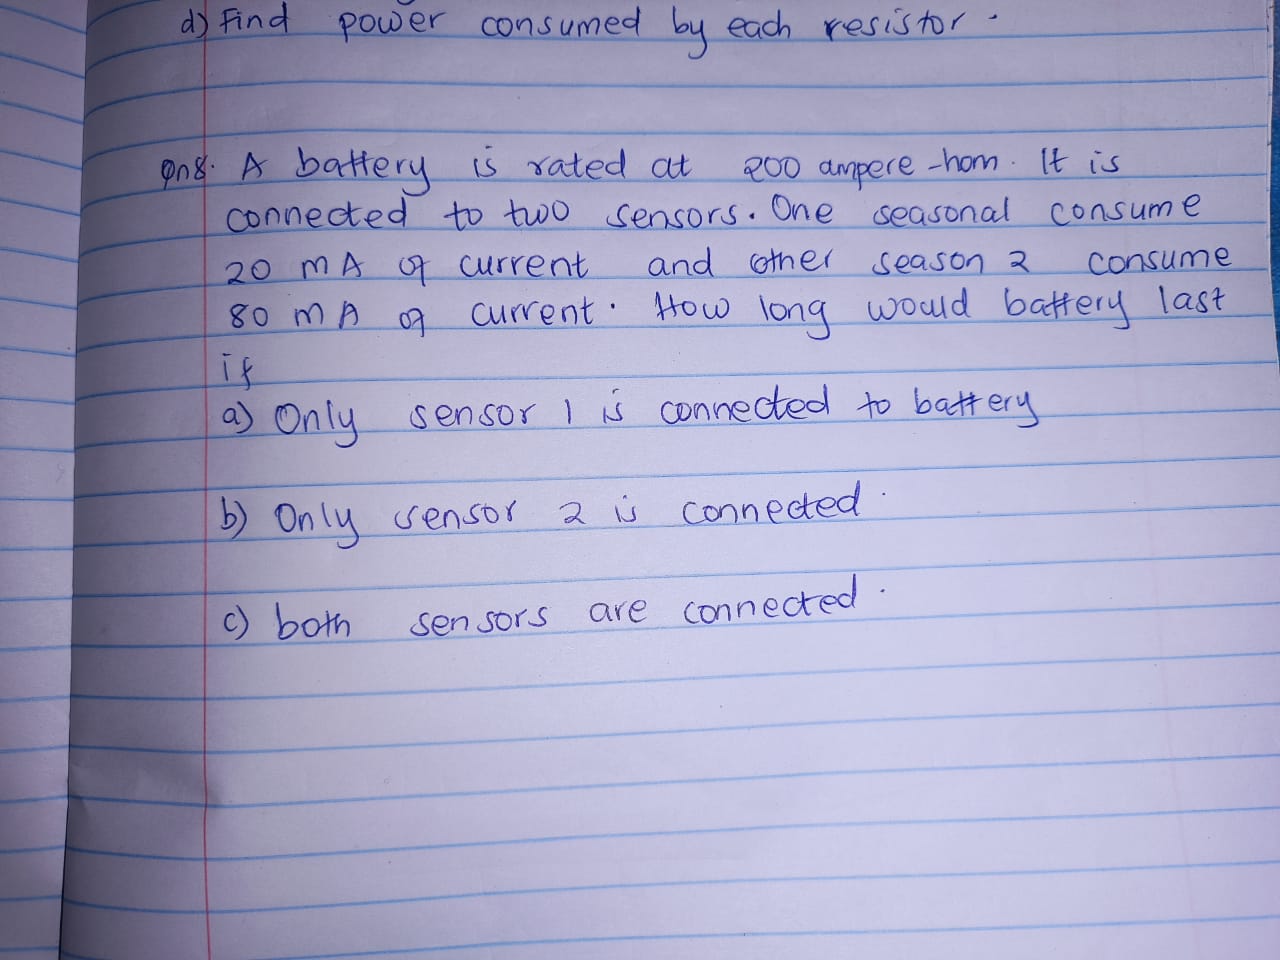 d) Find power consumed by each resistor.
Qn8. A battery is rated at 200 ampere-hom. It is
connected to two sensors. One seasonal consume
20 mA of current and other season 2 consume
80 mA of current. How long would battery last
if
a) Only sensor 1 is connected to battery
b) Only sensor 2 is connected.
c) both sensors are connected.